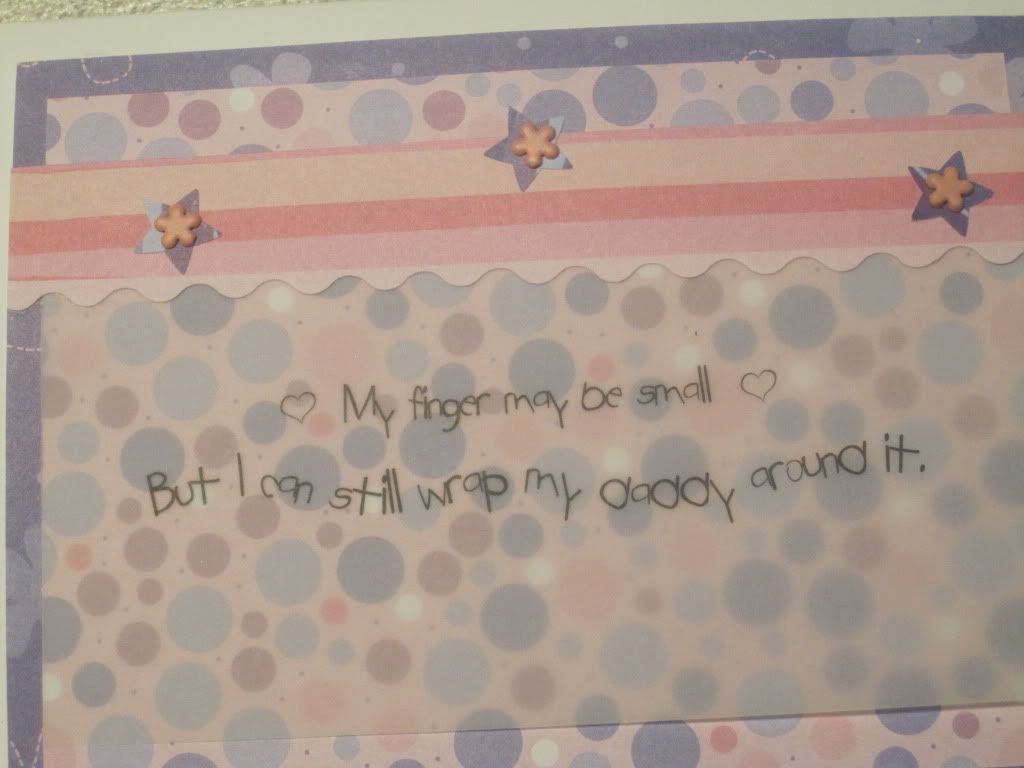 ♡ My finger may be small ♡
But I can still wrap my daddy around it.